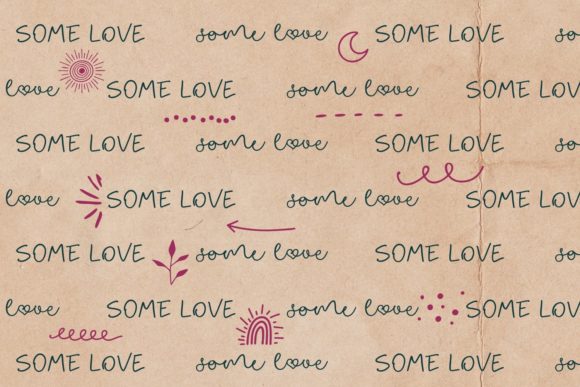 SOME LOVE some love SOME LOVE
love SOME LOVE some love SOME LOVE
SOME LOVE some love SOME LOVE
love SOME LOVE some love SOME LOVE
SOME LOVE some love SOME LOVE
love SOME LOVE some love SOME LOVE
SOME LOVE some love SOME LOVE